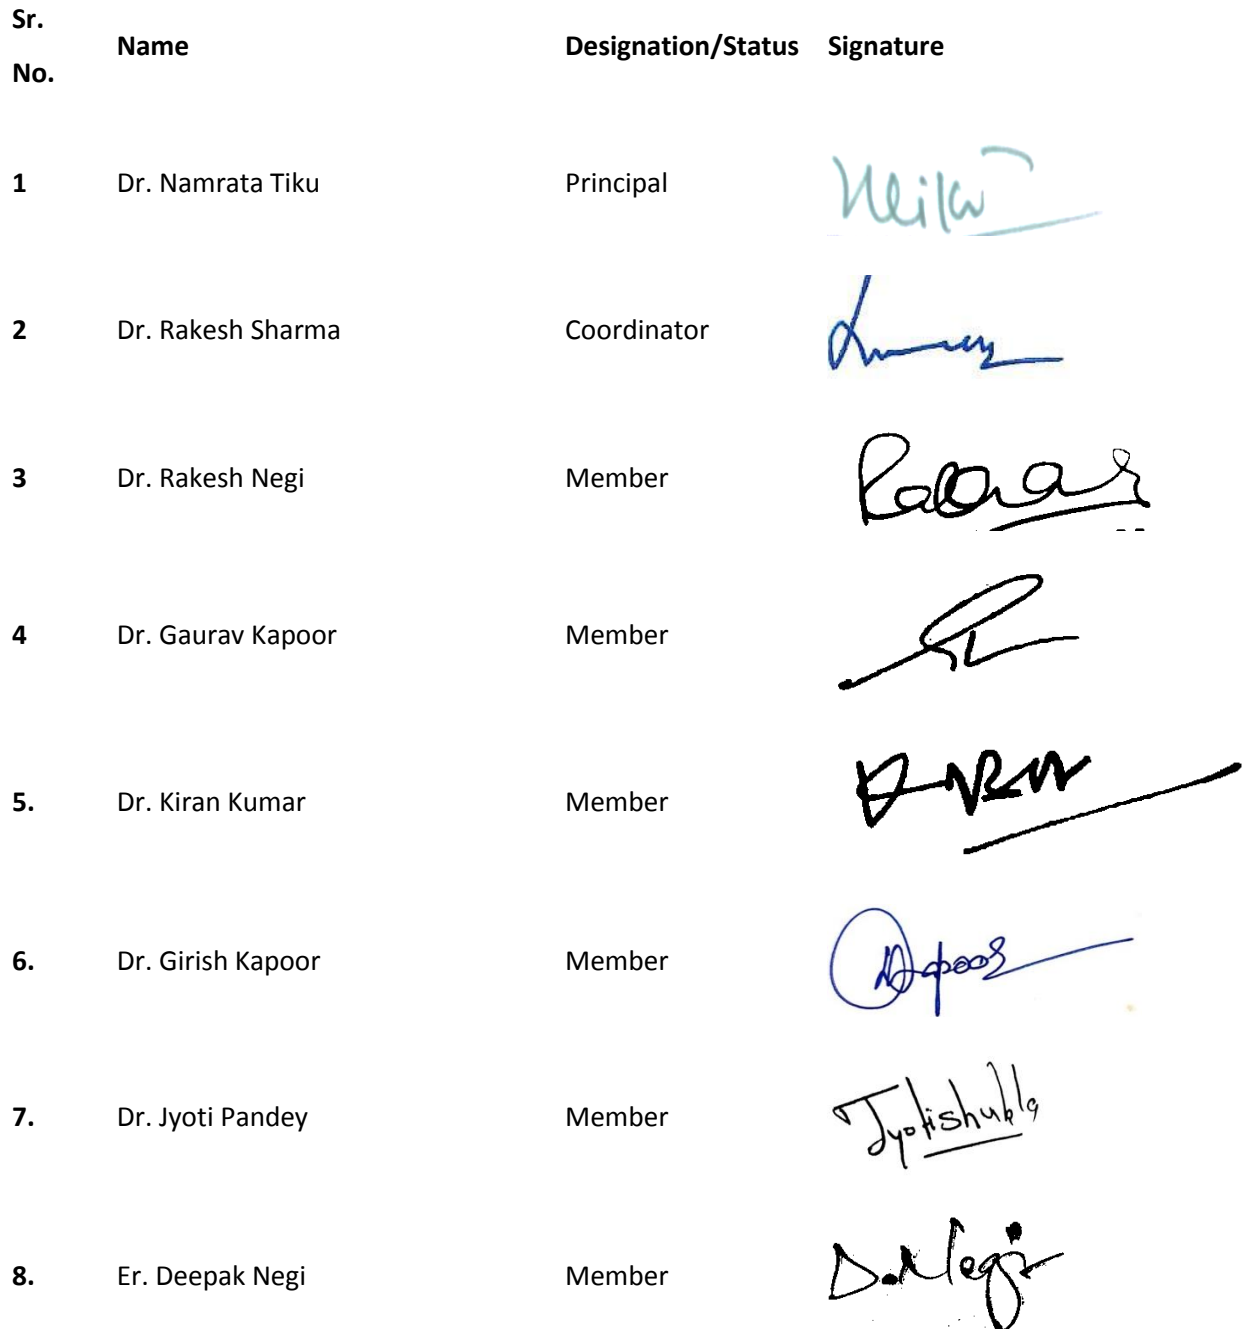 Sr.
No.
Name
Designation/Status
Signature
1 Dr. Namrata Tiku Principal
2 Dr. Rakesh Sharma Coordinator
3 Dr. Rakesh Negi Member
4 Dr. Gaurav Kapoor Member
5. Dr. Kiran Kumar Member
6. Dr. Girish Kapoor Member
7. Dr. Jyoti Pandey Member Jyotishukla
8. Er. Deepak Negi Member D. Negi